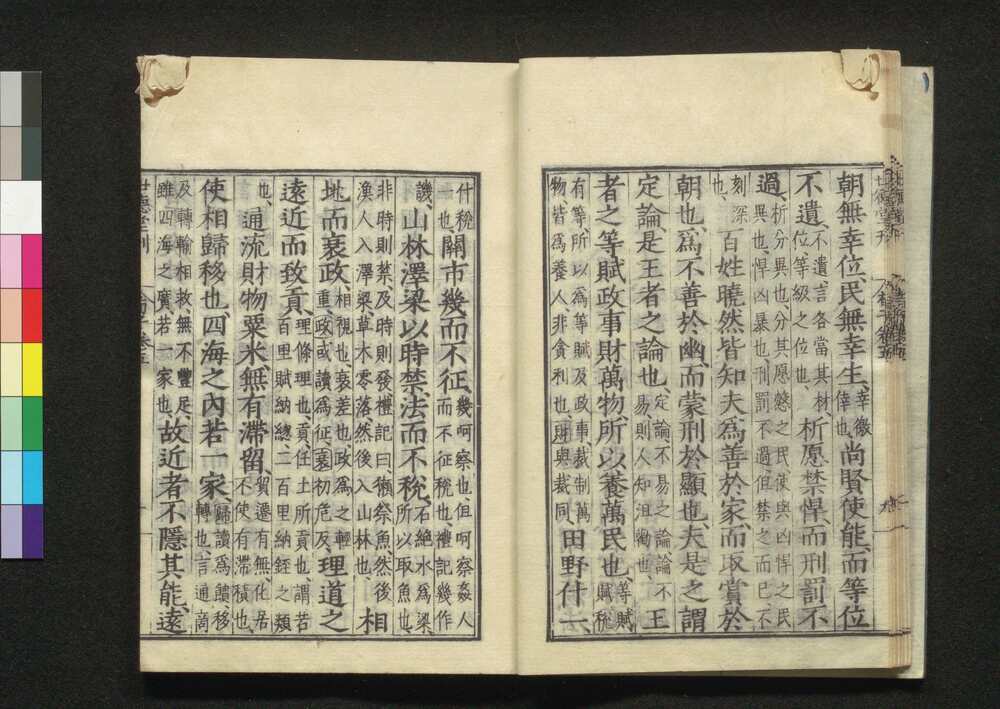 朝無幸位民無幸生、幸徼倖也、尚賢使能、而等位
不遺、不遺言各當其材、位等級之位也、析愿禁悍、而刑罰不
過、析分異也、分其愿慤之民使與凶悍之民異也、悍凶暴也、刑罰不過、但禁之而已不
刻深也、百姓曉然皆知夫爲善於家、而取賞於
朝也、爲不善於幽、而蒙刑於顯也、夫是之謂
定論、是王者之論也、定論不易之論論不易則人知沮勸也、王
者之等賦政事財萬物、所以養萬民也、等賦賦稅
有等所以爲等賦及政事裁制萬物皆爲養人非貪利也、財與裁同、田野什一、
什稅一也、關市幾而不征、幾呵察也、但呵察姦人而不征稅也、禮記幾作
譏、山林澤梁以時禁、法而不稅、石絕水爲梁所以取魚也、
非時則禁、及時則發、禮記曰、獺祭魚、然後漁人入澤梁、草木零落、然後入山林也、相
地而衰政、相視也、衰差也、政爲之輕重、政或讀爲征、衰初危反、理道之
遠近而致貢、理條理也、貢任土所貢也、謂若百里賦納總、二百里納銍之類
也、通流財物粟米、無有滯留、貿遷有無化居不使有滯積也、
使相歸移也、四海之內若一家、歸讀爲饋、移轉也、言通商
及轉輸相救、無不豐足、雖四海之實若一家也、故近者不隱其能、遠
世德堂刊
荀子卷五